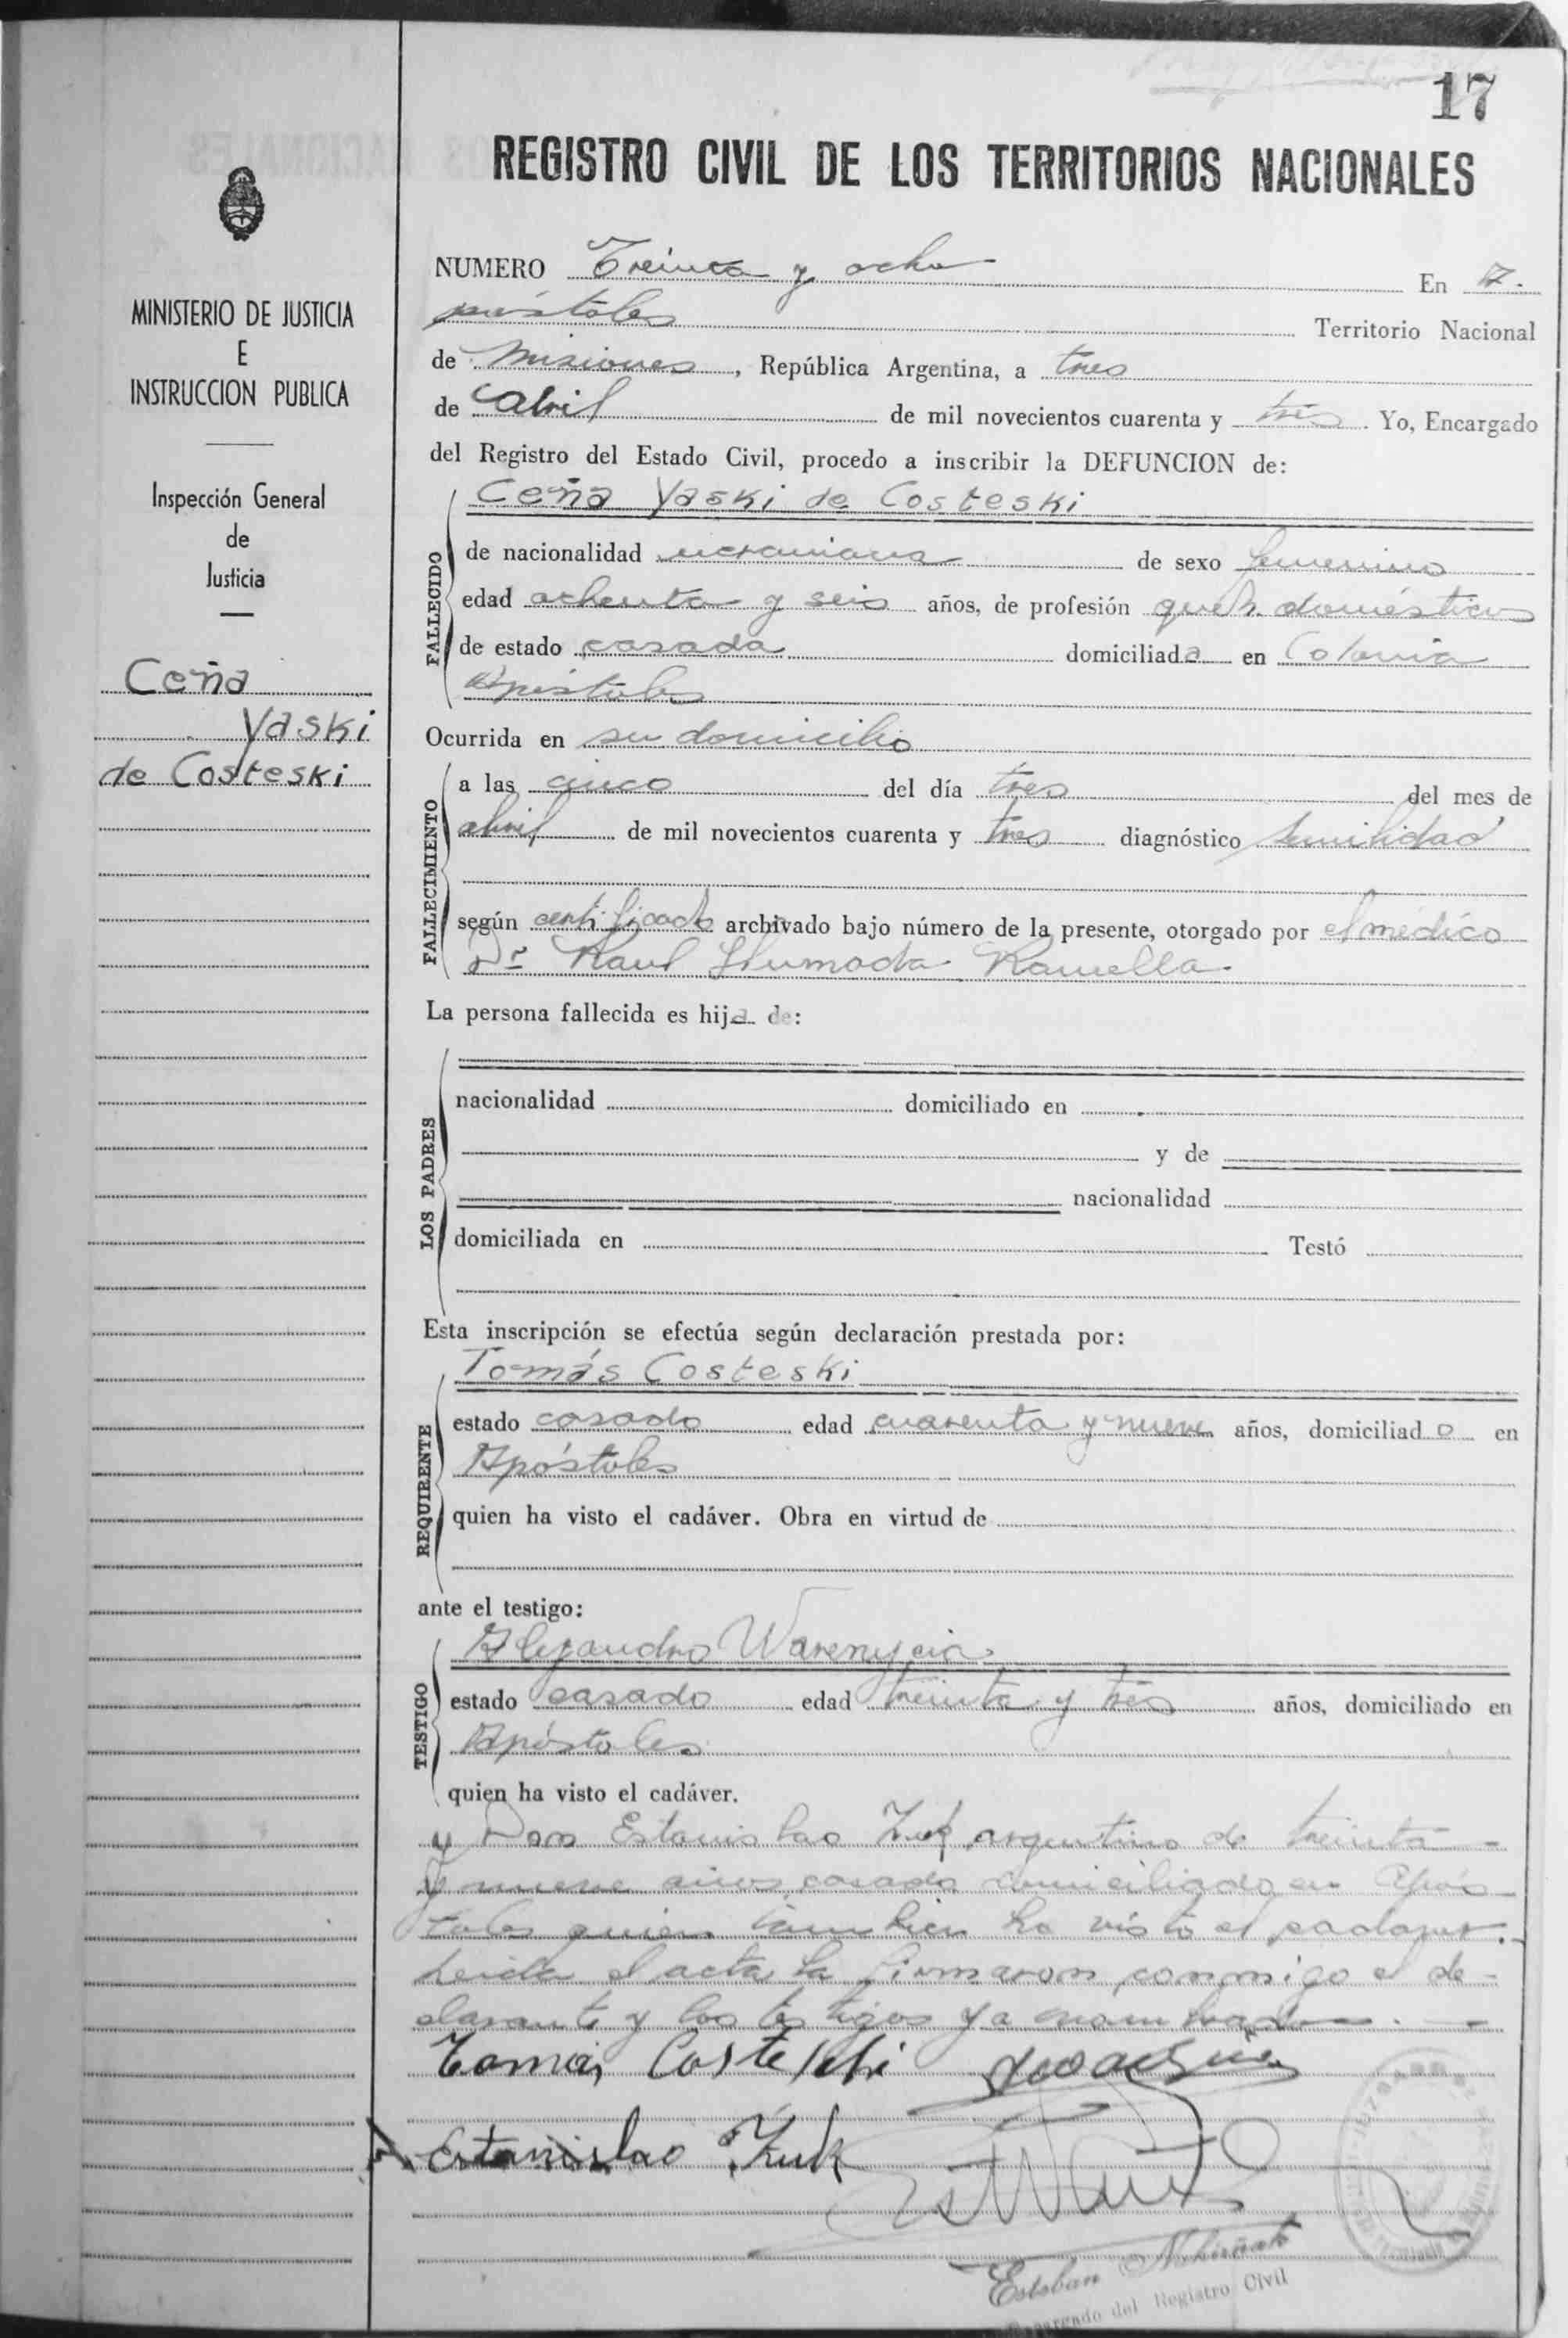 17
REGISTRO CIVIL DE LOS TERRITORIOS NACIONALES
MINISTERIO DE JUSTICIA
E
INSTRUCCION PUBLICA
Inspección General
de
Justicia
Ceña
Yaski
de Costeski
NUMERO Treinta y ocho En A-
póstoles Territorio Nacional
de Misiones, República Argentina, a tres
de Abril de mil novecientos cuarenta y tres. Yo, Encargado
del Registro del Estado Civil, procedo a inscribir la DEFUNCION de:
Ceña Yaski de Costeski
FALLECIDO
de nacionalidad ucraniana de sexo femenino
edad ochenta y seis años, de profesión queh. domésticos
de estado casada domiciliada en Colonia
Apóstoles
Ocurrida en su domicilio
FALLECIMIENTO
a las cinco del día tres del mes de
abril de mil novecientos cuarenta y tres diagnóstico Senilidad
según certificado archivado bajo número de la presente, otorgado por el médico
Dr Raul
La persona fallecida es hija de:
LOS PADRES
nacionalidad domiciliado en
y de
nacionalidad
domiciliada en Testó
Esta inscripción se efectúa según declaración prestada por:
Tomás Costeski
REQUIRENTE
estado casado edad cuarenta y nueve años, domiciliado en
Apóstoles
quien ha visto el cadáver. Obra en virtud de
ante el testigo:
Alejandro Warenycia
TESTIGO
estado casado edad treinta y tres años, domiciliado en
Apóstoles
quien ha visto el cadáver.
y Don Estanislao Zuk argentino de treinta
y nueve años, casado domiciliado en Após
toles quien tambien ha visto el cadaver.
Leida el acta la firmaron conmigo el de-
clarante y los testigos ya nombrados. -
Tomás Costeski
Estanislao Zuk
Esteban
Encargado del Registro Civil